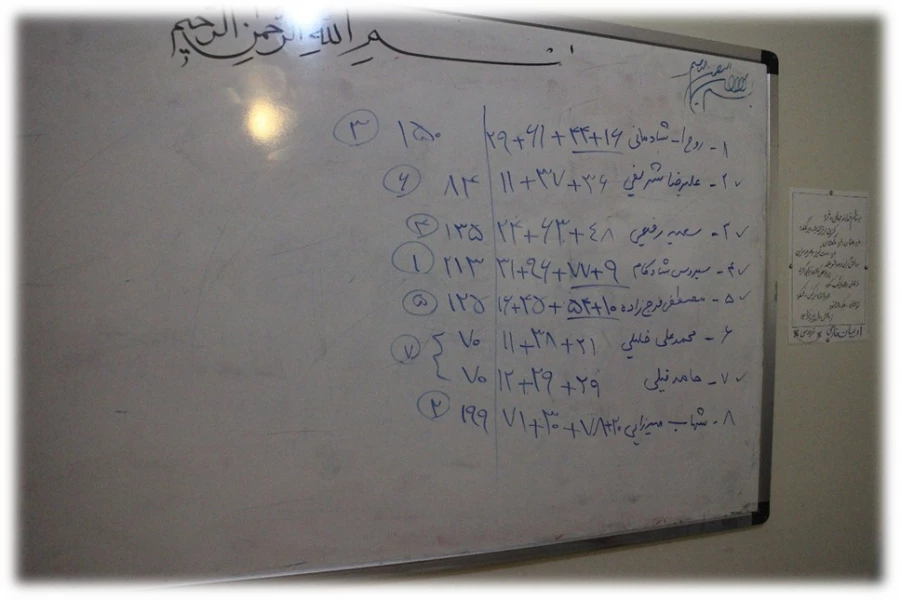 بسم الله الرحمن الرحیم
بسم الله الرحمن الرحیم
۱- روح ا- شادمانی ۱۶+۴۴ + ۶۱ + ۲۹ ۱۵۰ ۳
۲- علیرضا شریفی ۳۶ + ۳۷ + ۱۱ ۸۴ ۶
۳- سعید رفیعی ۴۸ + ۶۳ + ۲۴ ۱۳۵ ۴
۴- سیروس شادکام ۹+۷۷ + ۹۶ + ۳۱ ۲۱۳ ۱
۵- مصطفی فرج زاده ۱۰+۵۴ + ۴۵ + ۱۶ ۱۲۵ ۵
۶- محمدعلی خلیلی ۲۱ + ۳۸ + ۱۱ ۷۰ ۷
۷- حامد نیلی ۲۹ + ۲۹ + ۱۲ ۷۰
۸- شهاب میرزایی ۲۰+۷۸ + ۳۰ + ۷۱ ۱۹۹ ۲